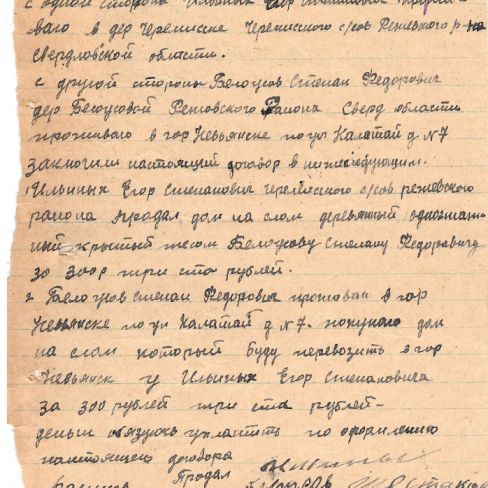 с одной стороны Ильиных Егор Степанович прожи-
ваю в дер Черемисске Черемисского с/сов Режевского р-на
Свердловской области.
с другой стороны Белоусов Степан Федорович
дер Белоусовой Режовского Района Сверд области
проживаю в гор Невьянске по ул Калатай д N7
заключили настоящий договор в нижеследующим.
1 Ильиных Егор Степанович черемисского с/сов режевского
района продал дом на слом деревянный одноэтаж-
ный крытый тесом Белоусову Степану Федоровичу
за 300р три ста рублей.
2 Белоусов Степан Федорович проживая в гор
Невьянске по ул Калатай д N7. покупаю дом
на слом который буду перевозить в гор
Невьянск у Ильиных Егор Степановича
за 300 рублей три ста рублей-
деньги обязуюсь уплатить по оформлению
настоящего договора
Продал Ильиных
Белоусов